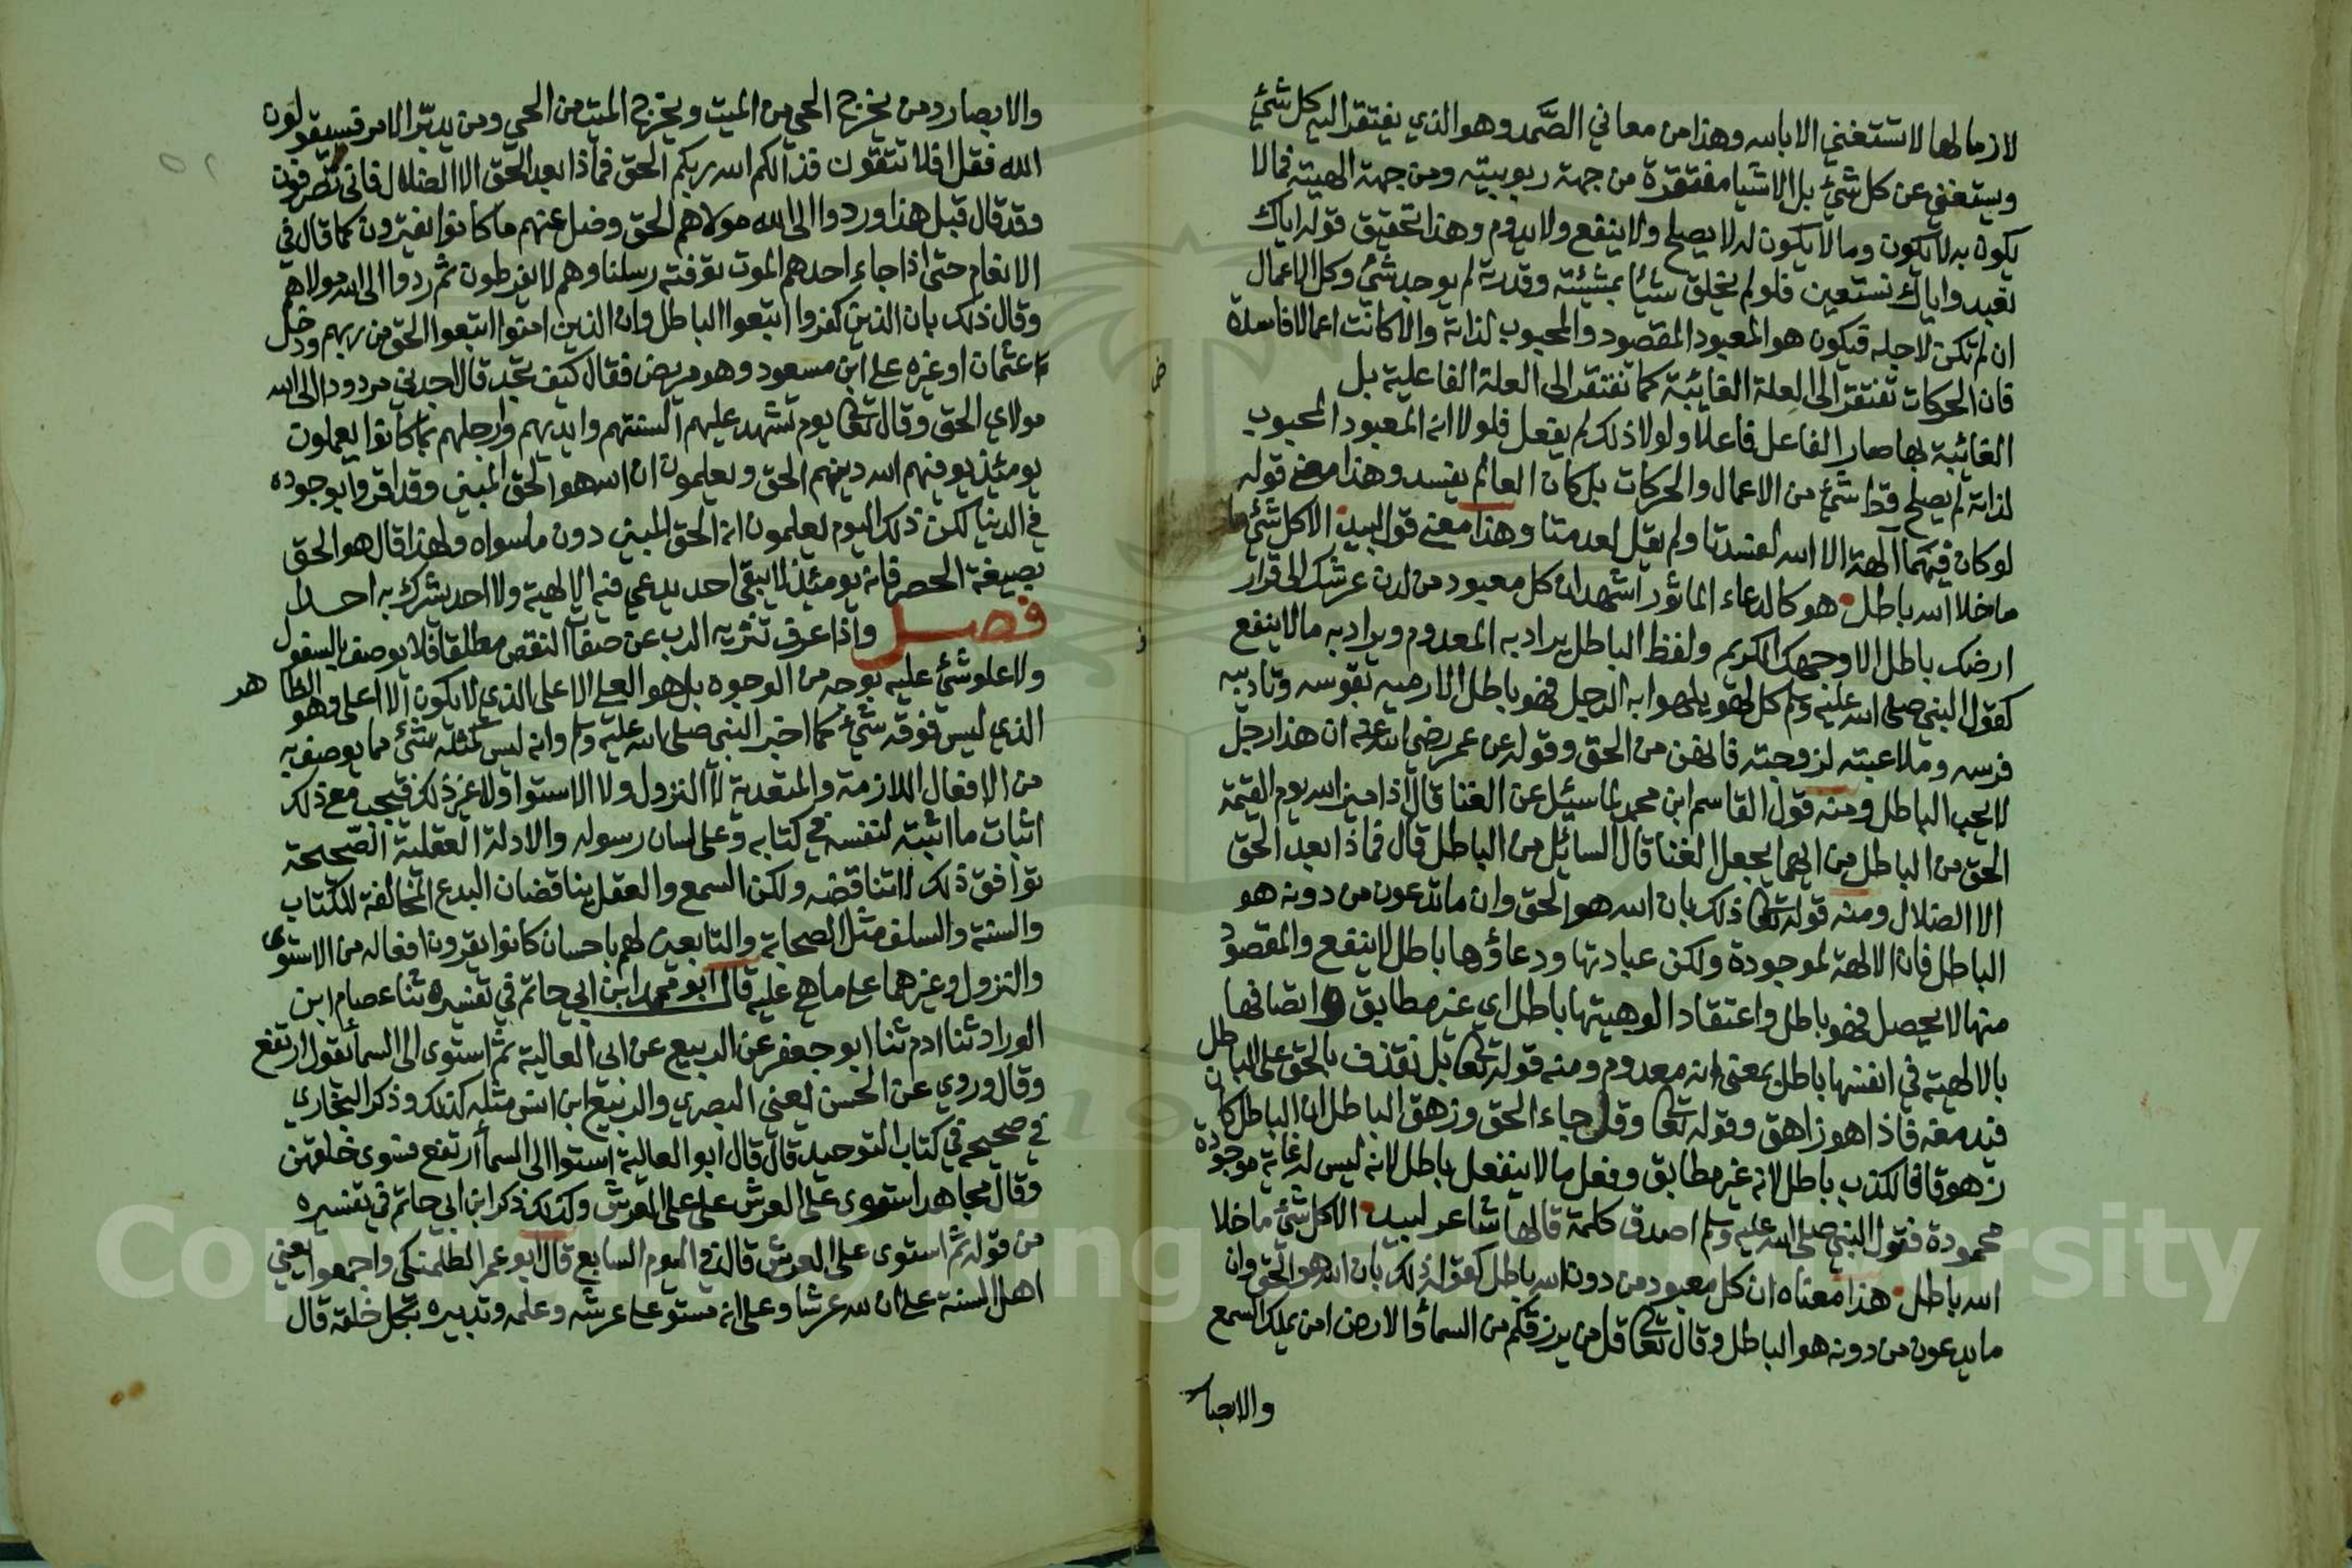 لازما لها لا تستغني الا بالله وهذا من معاني الصَّمد وهو الذي يفتقر اليه كل شئ
ويستغني عن كل شئ بل الاشيا مفتقرة من جهة ربوبيته ومن جهة الهيته فمالا
يكون به لا يكون وما لا يكون له لا يصلح ولا ينفع ولا يدوم وهذا تحقيق قوله اياك
نعبد واياك نستعين فلو لم يخلق شيأ بمشيئته وقدرته لم يوجد شئ وكل الاعمال
ان لم تكن لاجله فيكون هو المعبود المقصود والمحبوب لذاته والا كانت اعمالا فاسدة
فان الحركات تفتقر الى العلة الغائية كما تفتقر الى العلة الفاعلية بل
الغائية بها صار الفاعل فاعلا ولولا ذلك لم يفعل فلولا انه المعبود المحبوب
لذاته لم يصلح قط شئ من الاعمال والحركات بل كان العالم يفسد وهذا معنى قوله
لو كان فيهما آلهة الا الله لفسدتا ولم يقل لعدمتا وهذا معنى قول لبيد الا كل شئ ما
ما خلا الله باطل هو كالدعاء المأثور اشهد ان كل معبود من لدن عرشك الى قرار
ارضك باطل الا وجهك الكريم ولفظ الباطل يراد به المعدوم ويراد به مالا ينفع
كقول النبي صلى الله عليه وسلم كل لهو يلهوا به الرجل فهو باطل الا رميه بقوسه وتاديبه
فرسه وملاعبته لزوجته فانهن من الحق وقوله عن عمر رضي الله عنه ان هذا رجل
لا يحب الباطل ومنه قول القاسم ابن محمد لما سيئل عن الغنا قال اذا ميز الله يوم القيمة
الحق من الباطل من ايهما يجعل الغنا قال السائل من الباطل قال فماذا بعد الحق
الا الضلال ومنه قوله تعالى ذلك بان الله هو الحق وان ما تدعون من دونه هو
الباطل فان الالهة لموجودة ولكن عبادتها ودعاؤها باطل لا ينفع والمقصود
منها لا يحصل فهو باطل واعتقاد الوهيتها باطل اي غير مطابق و اتصافها
بالالهية في انفسها باطل بمعنى انه معدوم ومنه قوله تعالى بل نقذف بالحق على الباطل
فيدمغه فاذا هو زاهق وقوله تعالى وقل جاء الحق وزهق الباطل ان الباطل كان
زهوقا فالكذب باطل لانه غير مطابق وفعل مالا ينفعل باطل لانه ليس له غاية موجودة
محمودة فقول النبي صلى الله عليه وسلم اصدق كلمة قالها شاعر لبيد الا كل شئ ما خلا
الله باطل هذا معناه ان كل معبود من دون الله باطل كقوله ذلك بان الله هو الحق وان
ما يدعون من دونه هو الباطل وقال تعالى قل من يرزقكم من السمأ والارض امن يملك السمع
والابصار
والابصار ومن يخرج الحي من الميت ويخرج الميت من الحي ومن يدبر الامر فسيقولون
الله فقل افلا تتقون فذالكم الله ربكم الحق فماذا بعد الحق الا الضلال فانى تصرفون
وقد قال قبل هذا وردوا الى الله مولاهم الحق وضل عنهم ما كانوا يفترون كما قال في
الانعام حتى اذا جاء احدهم الموت توفته رسلنا وهم لا يفرطون ثم ردوا الى الله مولاهم
وقال ذلك بان الذين كفروا اتبعوا الباطل وان الذين امنوا اتبعوا الحق من ربهم ودخل
عثمان او غيره على ابن مسعود وهو مريض فقال كيف تجد قال اجدني مردودا الى الله
مولاي الحق وقال تعالى يوم تشهد عليهم السنتهم وايديهم وارجلهم بما كانوا يعملون
يومئذ يوفيهم الله دينهم الحق ويعلمون ان الله هو الحق المبين وقد اقروا بوجوده
في الدنيا لكن ذلك اليوم يعلمون انه الحق المبين دون ما سواه ولهذا قال هو الحق
بصيغة الحصر فانه يومئذ لا يبقى احد يدعي فيه الالهية ولا احد يشرك به احدا
فصل واذا عرف تنزيه الرب عن صفات النقص مطلقا فلا يوصف بالسفول
ولا علو شئ عليه بوجه من الوجوه بل هو العلي الاعلى الذي لا يكون الا اعلى وهو الظاهر
الذي ليس فوقه شئ كما اخبر النبي صلى الله عليه وسلم وانه ليس كمثله شئ مما يوصف به
من الافعال اللازمة والمتعدية لا النزول ولا الاستوا ولا غير ذلك فيجب مع ذلك
اثبات ما اثبته لنفسه في كتابه وعلى لسان رسوله والادلة العقلية الصحيحة
توافق ذلك لا تناقضه ولكن السمع والعقل يناقضان البدع المخالفة للكتاب
والسنة والسلف مثل الصحابة والتابعين لهم باحسان كانوا يقرون افعاله من الاستوى
والنزول وغيرهما على ما هي عليه قال ابو محمد ابن ابي حاتم في تفسيره ثنا عصام ابن
الوراد ثنا ادم ثنا ابو جعفر عن الربيع عن ابي العالية ثم استوى الى السمأ يقول ارتفع
وقال وروي عن الحسن يعني البصري والربيع ابن انس مثله كذلك وذكر البخاري
في صحيحه في كتاب التوحيد قال قال ابو العالية استوا الى السمأ ارتفع فسوى خلقهن
وقال مجاهد استوى على العرش علا على العرش وكذلك ذكر ابن ابي حاتم في تفسيره
من قوله ثم استوى على العرش قال في اليوم السابع قال ابو عمر الطلمنكي واجمعوا يعني
اهل السنة على ان لله عرشا وعلى انه مستو على عرشه وعلمه وتدبيره بكل خلقه قال